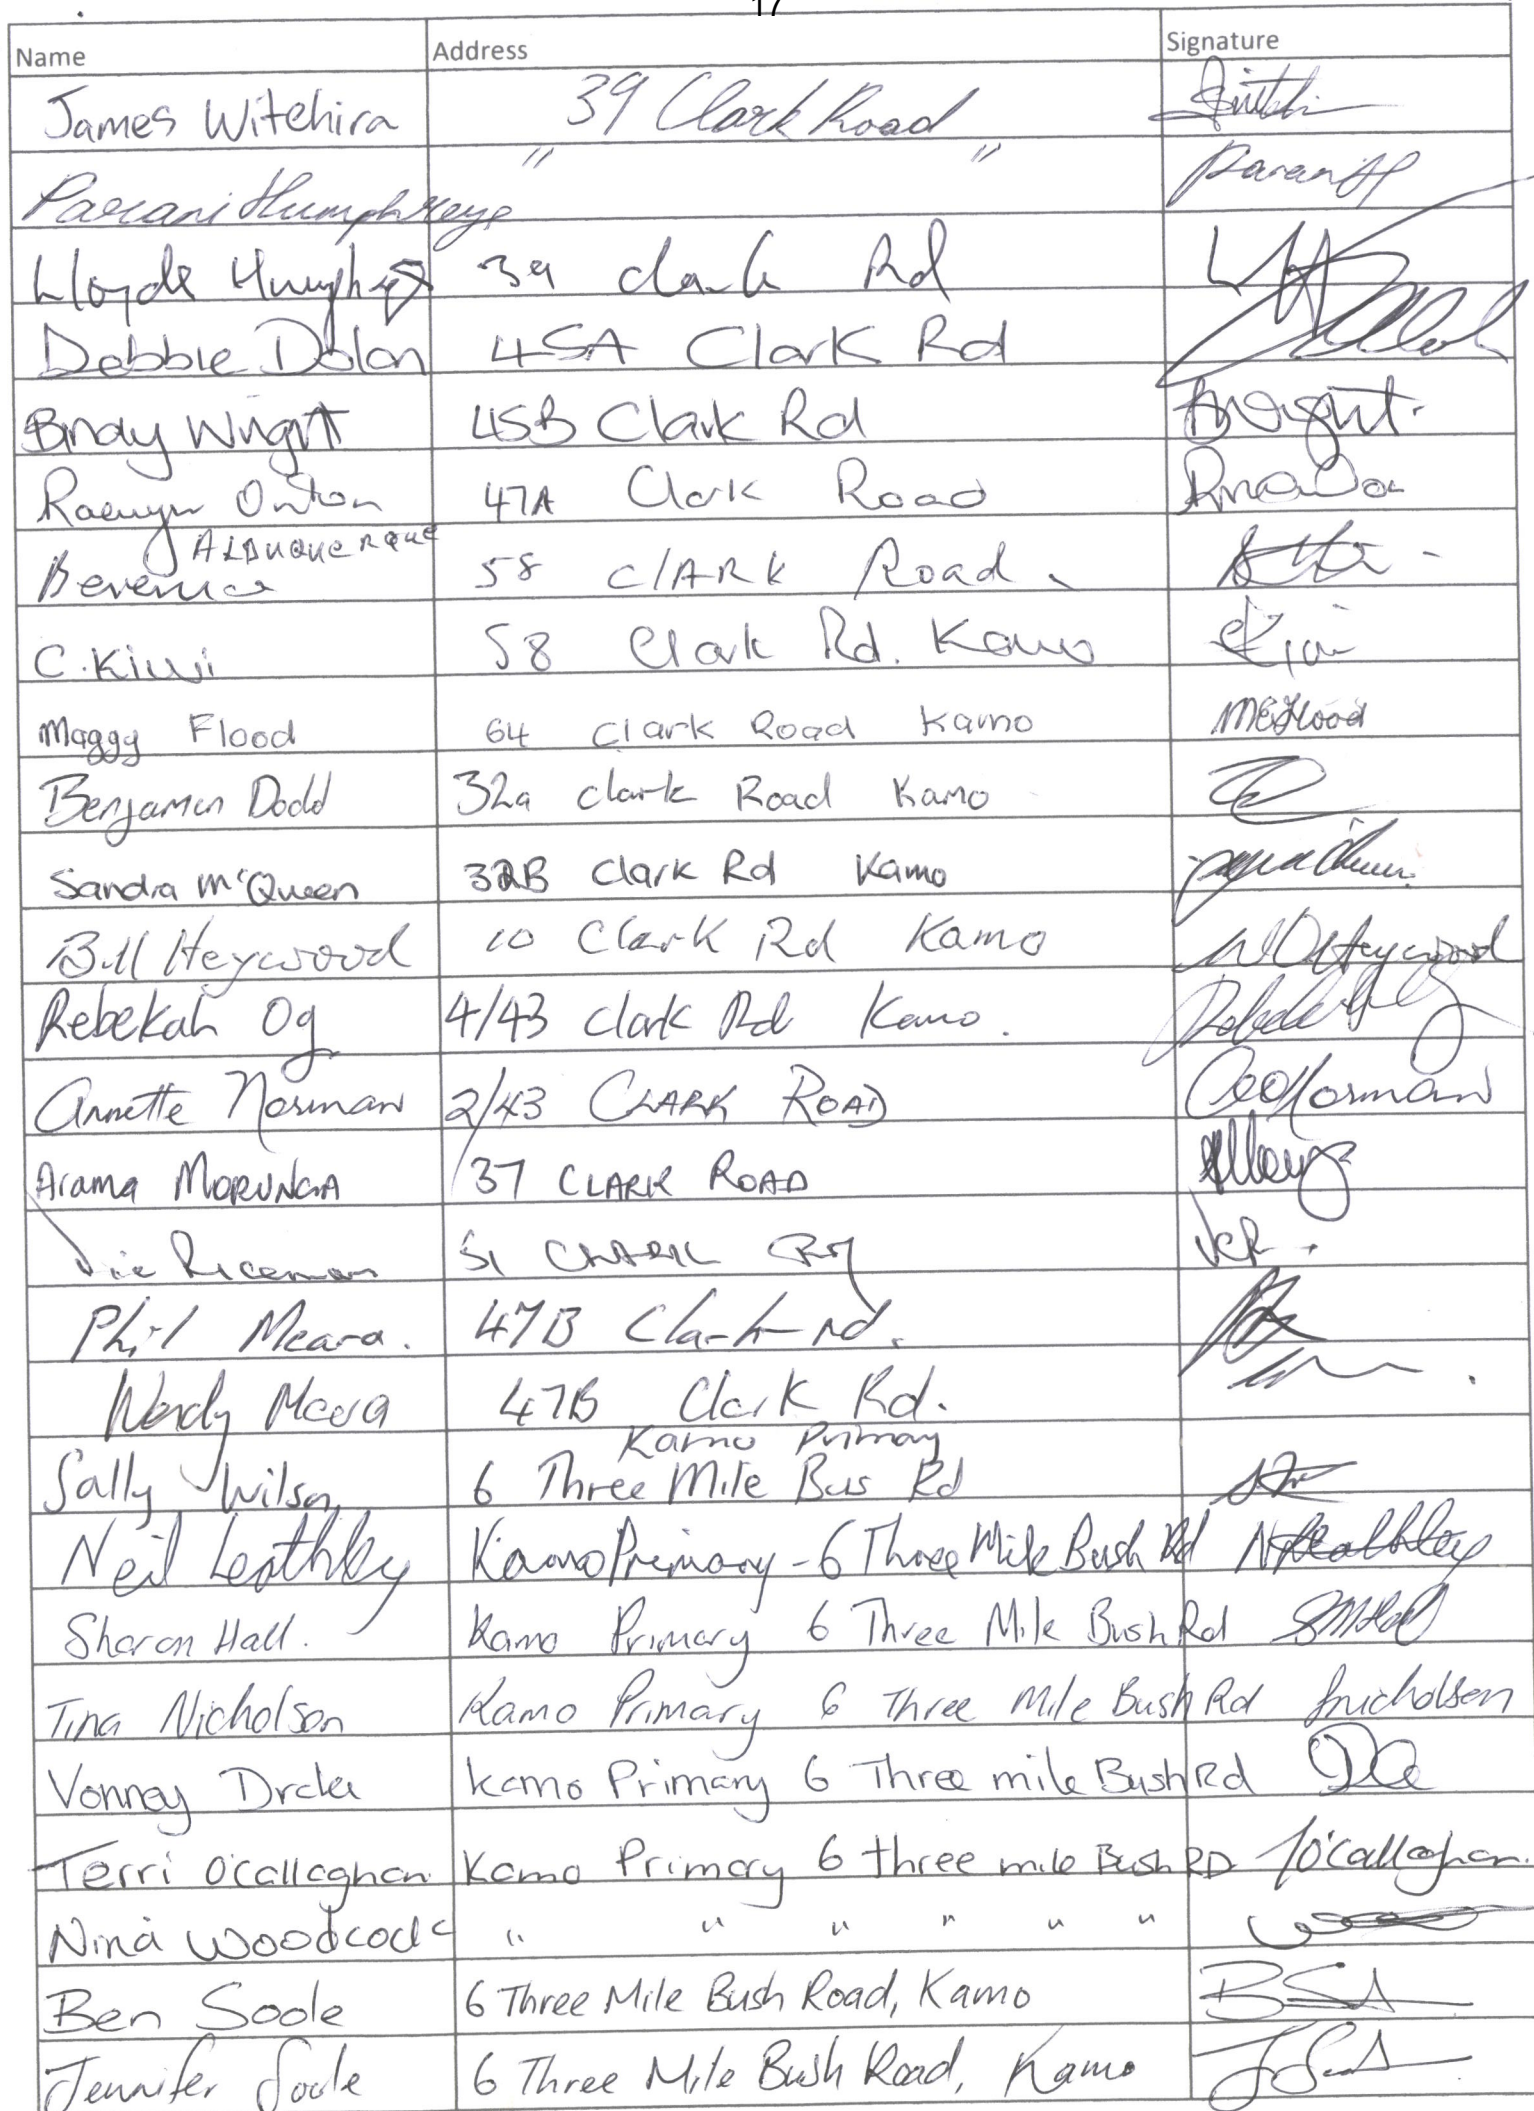 17
Name Address Signature
James Witehira 39 Clark Road
Parani Humphreys " " ParaniH
Lloyde Humphreys 39 Clark Rd
Debbie Dolan 45A Clark Rd
Bindy Wright 45B Clark Rd AWright.
Raewyn Onton 47A Clark Road
ALBUQUERQUE
Berenice 58 ClARK Road
C. Kiwi 58 Clark Rd. Kamo CKiwi
Maggy Flood 64 Clark Road Kamo MEFlood
Benjamin Dodd 32a Clark Road Kamo
Sandra McQueen 32B Clark Rd Kamo
Bill Heywood 10 Clark Rd Kamo Heywood
Rebekah Og 4/43 Clark Rd Kamo.
Annette Norman 2/43 CLARK ROAD Norman
Arama MORUNGA 37 CLARK ROAD
Vie Riceman 51 CLARK Rd VCR.
Phil Meara. 47B Clark rd.
Wendy Meara 47B Clark Rd.
Kamo Primary
Sally Wilson 6 Three Mile Bus Rd
Neil Leathley Kamo Primary - 6 Three Mile Bush Rd NLeathley
Sharon Hall. Kamo Primary 6 Three Mile Bush Rd SMHall
Tina Nicholson Kamo Primary 6 Three Mile Bush Rd Nicholson
Vonney Drake Kamo Primary 6 Three mile Bush Rd
Terri O'Callaghan Kamo Primary 6 three mile Bush RD TO'Callaghan.
Nina Woodcock " " " " " "
Ben Soole 6 Three Mile Bush Road, Kamo
Jennifer Soole 6 Three Mile Bush Road, Kamo